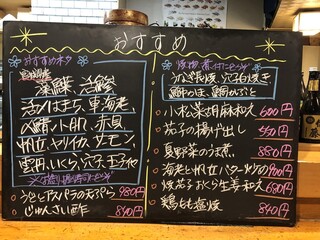 おすすめ
おすすめネタ
宮城県産
活〆はまち、車海老、
〆鯖、小肌、赤貝
帆立、ヤリイカ、サーモン、
雲丹、いくら、穴子、玉子
うどとアスパラの天ぷら 980円
じゅんさい酢 840円
うなぎ長焼、穴子白焼き
小松菜胡麻和え 600円
茄子の揚げ出し 550円
夏野菜のうま煮 880円
海老と帆立バター炒め 900円
焼茄子おくら生姜和え 680円
鶏もも塩焼 840円